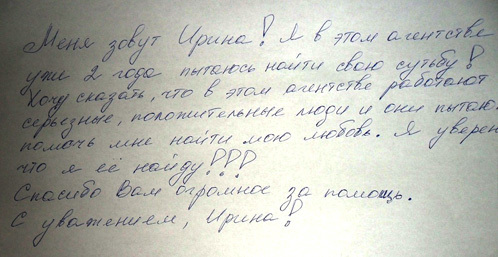 Меня зовут Ирина! Я в этом агентстве
уже 2 года пытаюсь найти свою судьбу!
Хочу сказать, что в этом агентстве работают
серьезные, положительные люди и они пытаю
помочь мне найти мою любовь. Я уверен
что я её найду!!!
Спасибо Вам огромное за помощь.
С уважением, Ирина!